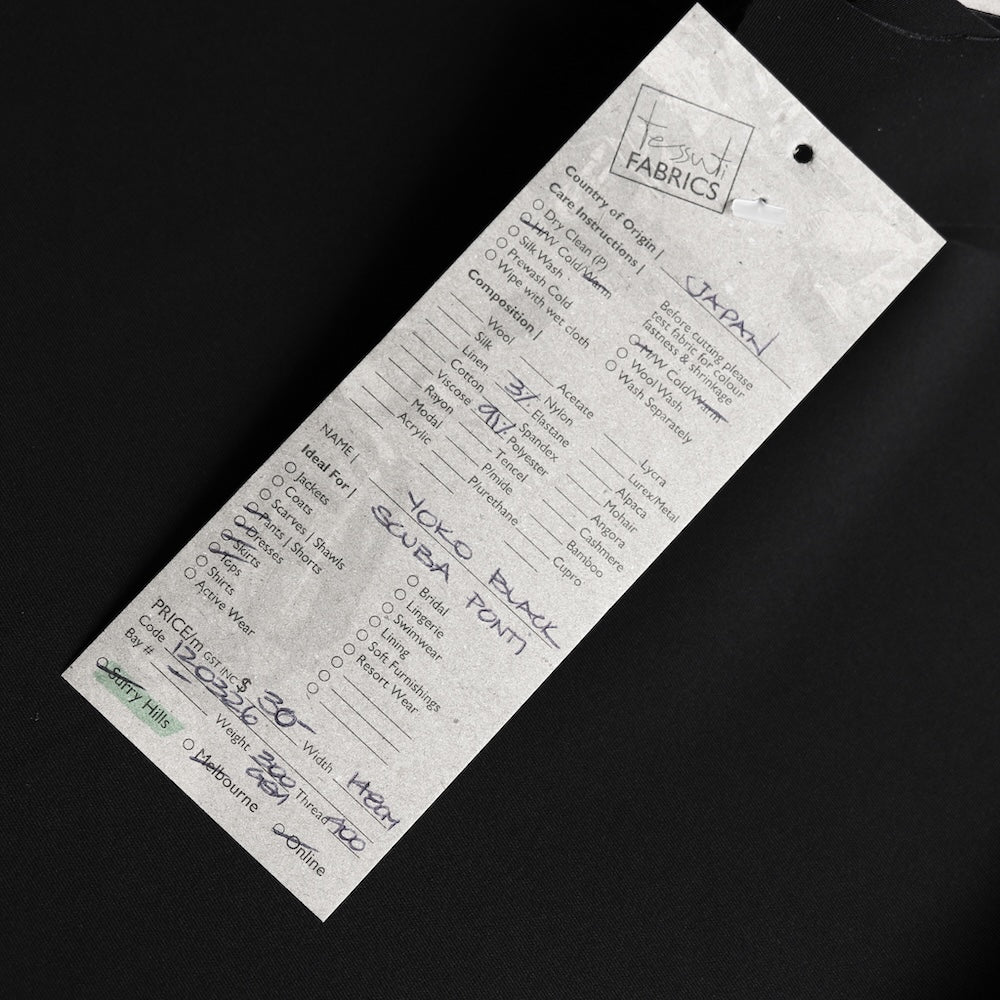 tessuti
FABRICS
Country of Origin | JAPAN
Care Instructions |
Before cutting please
test fabric for colour
fastness & shrinkage
Dry Clean (P)
H/W Cold/Warm
Silk Wash
Prewash Cold
Wipe with wet cloth
M/W Cold/Warm
Wool Wash
Wash Separately
Composition |
Wool
Silk
Linen
Cotton
Viscose
Rayon
Modal
Acrylic
Acetate
Nylon
3% Elastane
Spandex
97% Polyester
Tencel
P/mide
P/urethane
Lycra
Lurex/Metal
Alpaca
Mohair
Angora
Cashmere
Bamboo
Cupro
NAME | YOKO BLACK
SCUBA PONTI
Ideal For |
Jackets
Coats
Scarves | Shawls
Pants | Shorts
Dresses
Skirts
Tops
Shirts
Active Wear
Bridal
Lingerie
Swimwear
Lining
Soft Furnishings
Resort Wear
PRICE/m GST INC $ 30- Width 148CM
Code 1203226 Weight 300 GSM Thread 400
Bay #
Surry Hills Melbourne Online